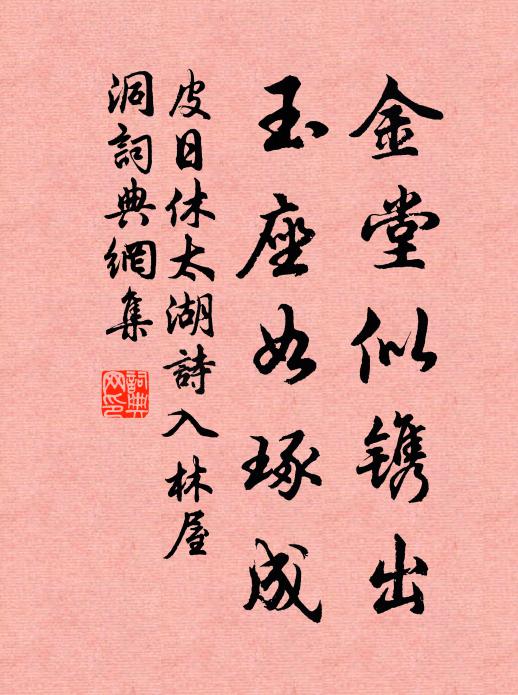 金堂似鐫出
玉座如琢成
皮日休太湖詩入林屋
洞詞典網集
詞典
网印